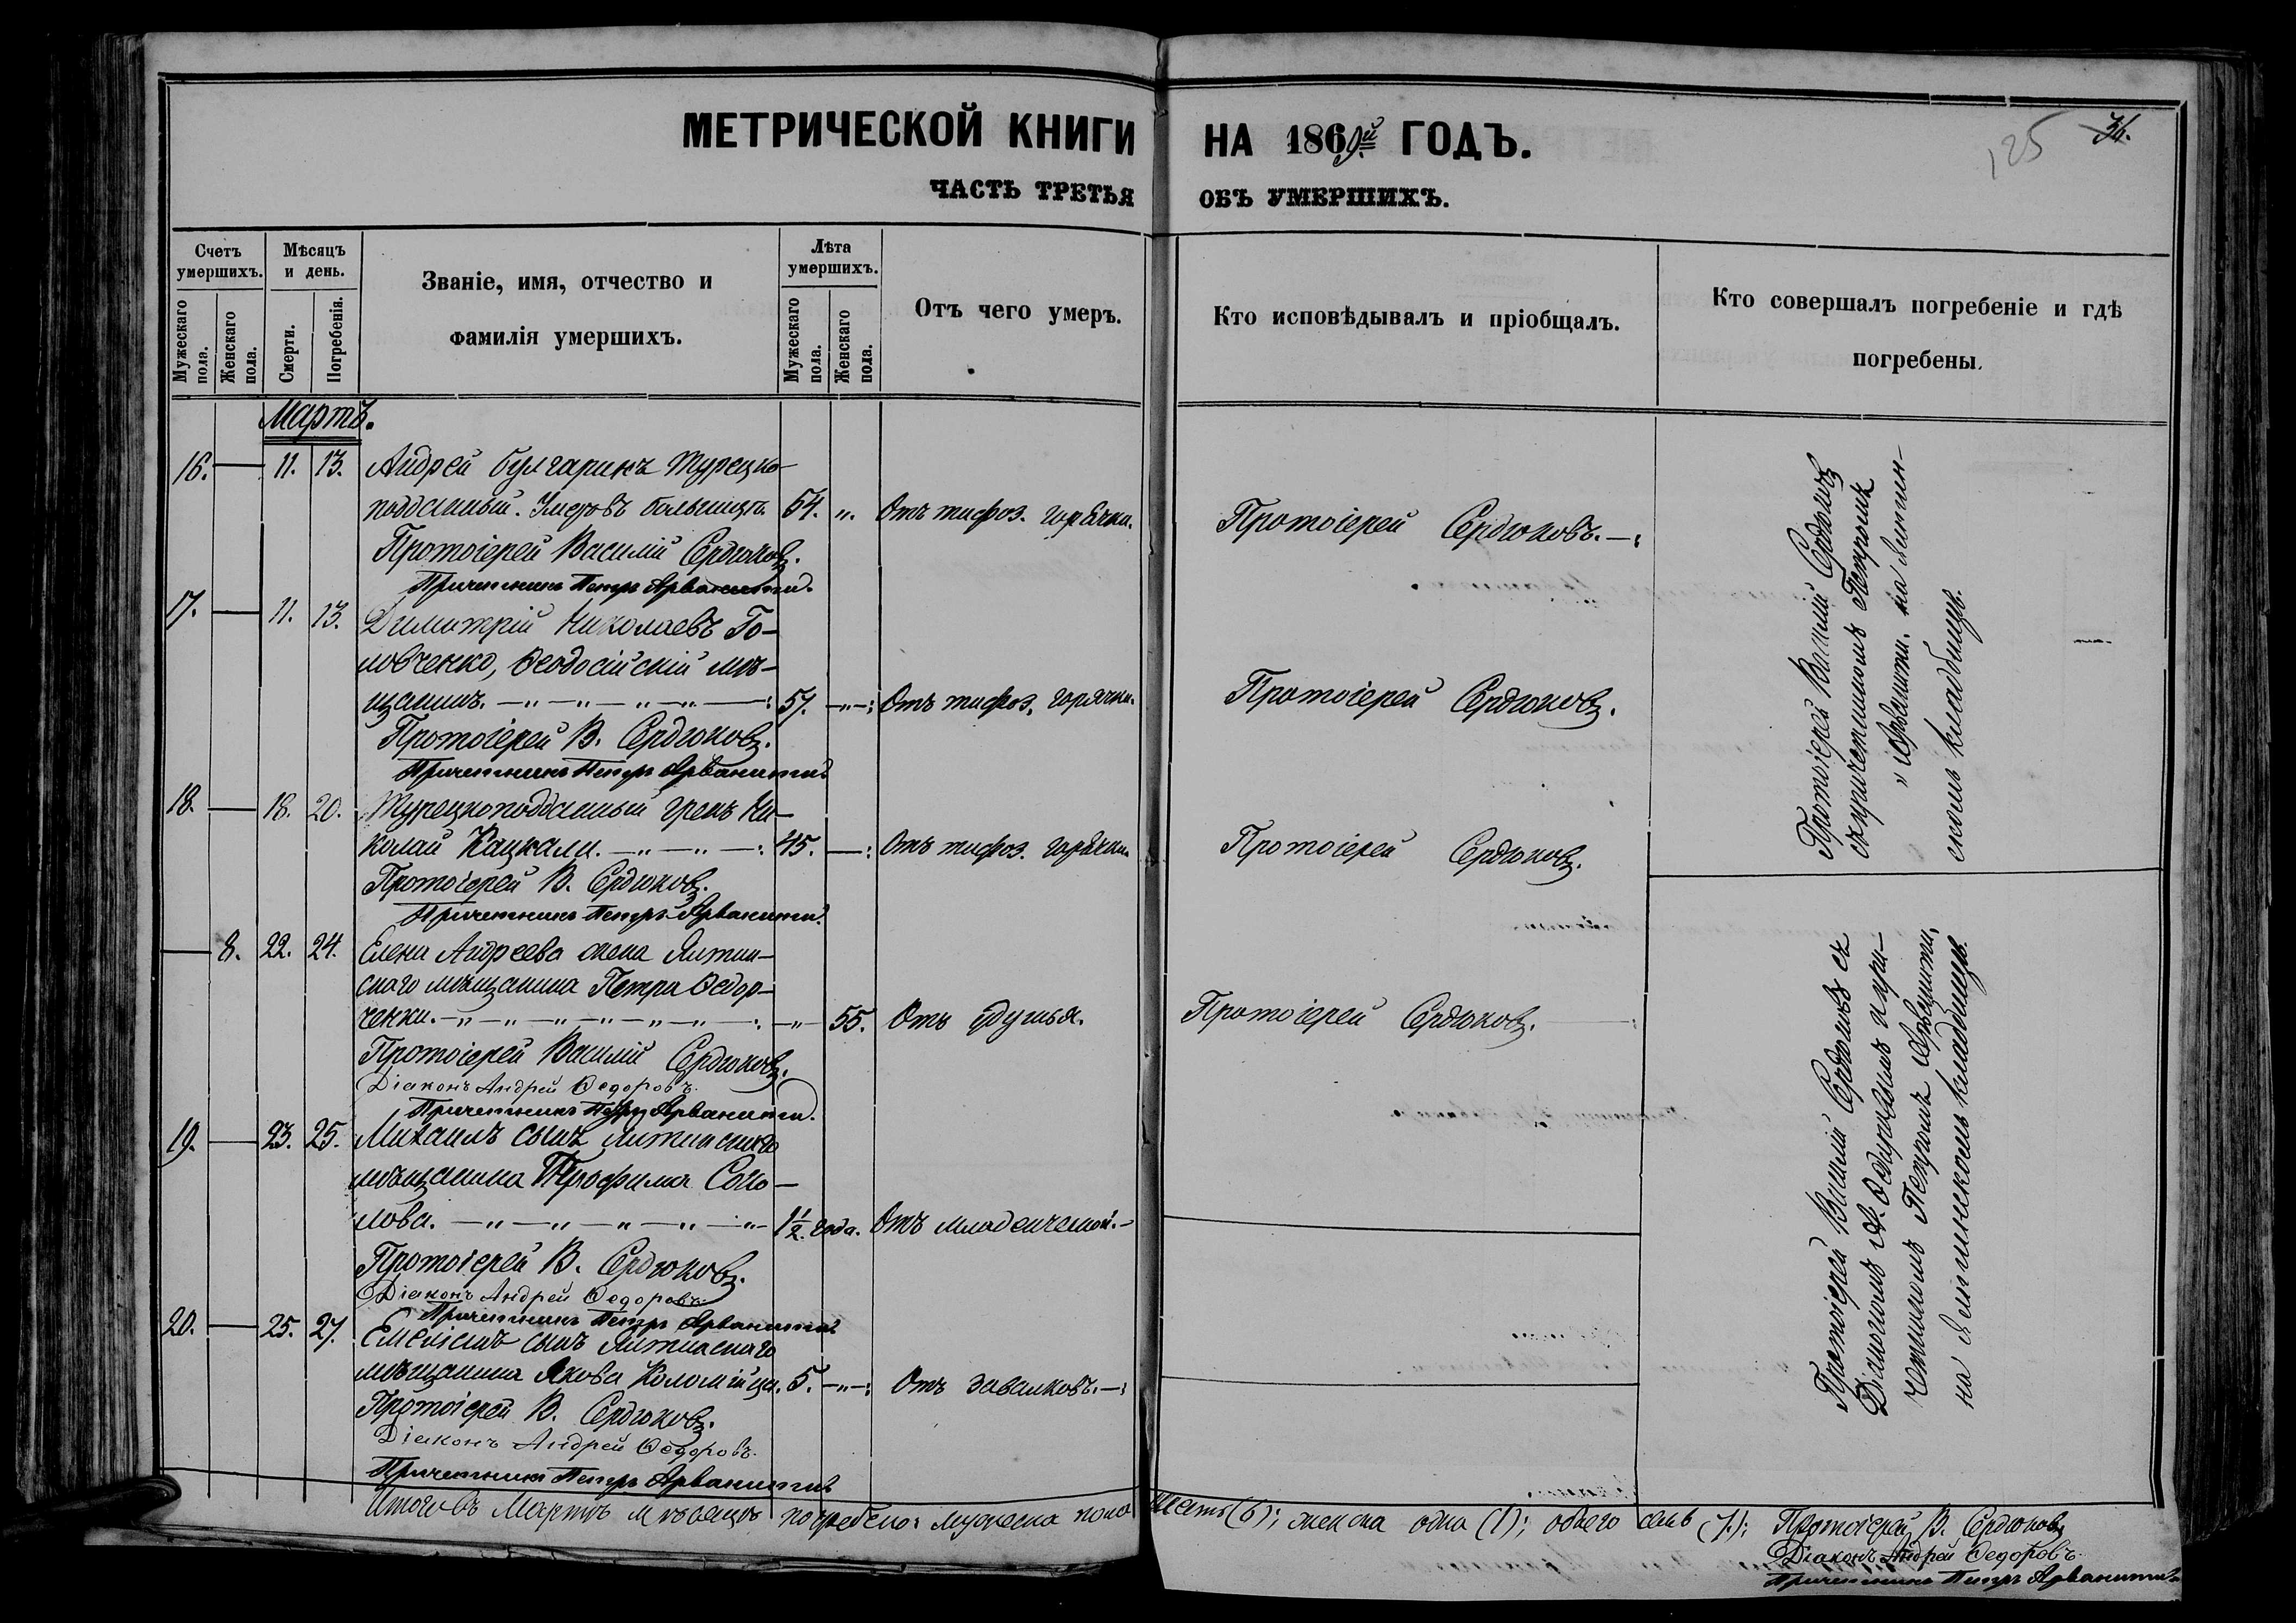 МЕТРИЧЕСКОЙ КНИГИ НА 1869й ГОДЪ.
125 36.
ЧАСТЬ ТРЕТЬЯ ОБЪ УМЕРШИХЪ.
Счетъ умершихъ.
Мужескаго пола.
Женскаго пола.
Мѣсяцъ и день.
Смерти.
Погребенія.
Званіе, имя, отчество и
фамилія умершихъ.
Лѣта умершихъ.
Мужескаго пола.
Женскаго пола.
Отъ чего умеръ.
Кто исповѣдывалъ и пріобщалъ.
Кто совершалъ погребеніе и гдѣ
погребены.
Мартъ.
16. — 11. 13. Андрей булгаринъ турецко-
подданный. 54. „. Отъ тифоз. горячки. Протоіерей Сердюковъ.—:
Протоіерей Василій Сердюковъ.
Причетникъ Петръ Арванити.
17. — 11. 13. Димитрій Николаевъ Го-
ловченко, Ѳеодосійскій мѣ-
щанинъ. —„—„—„—„—: 57. —„—: Отъ тифоз. горячки. Протоіерей Сердюковъ.
Протоіерей В. Сердюковъ.
Причетникъ Петръ Арванити
18. — 18. 20. Турецкоподданный грекъ Ни-
колай Кацкали. —„—„—: 45. —: Отъ тифоз. горячки. Протоіерей Сердюковъ.
Протоіерей В. Сердюковъ.
Причетникъ Петръ Арванити.
Протоіерей Василій Сердюковъ
съ причетникомъ Петромъ
Арванити. на Ялтин-
скомъ кладбищѣ.
— 8. 22. 24. Елена Андреева жена Ялтин-
скаго мѣщанина Петра Ѳедор-
ченки.—„—„—„—„—„—„—: —„— 55. Отъ удушья. Протоіерей Сердюковъ.
Протоіерей Василій Сердюковъ.
Діаконъ Андрей Ѳедоровъ.
Причетникъ Петръ Арванити.
19. — 23. 25. Михаилъ сынъ Ялтинскаго
мѣщанина Трофима Соко-
лова. —„—„—„—„—„— 1½ года. Отъ младенческой.—
Протоіерей В. Сердюковъ.
Діаконъ Андрей Ѳедоровъ.
Причетникъ Петръ Арванити
20. — 25. 27. Емеліанъ сынъ Ялтинскаго
мѣщанина Якова Коломійца. 5. —„—: Отъ завалковъ.—:
Протоіерей В. Сердюковъ.
Діаконъ Андрей Ѳедоровъ.
Причетникъ Петръ Арванити
Протоіерей Василій Сердюковъ съ
Діакономъ А. Ѳедоровымъ и при-
четникомъ Петромъ Арванити,
на Ялтинскомъ кладбищѣ.
Итого въ Мартѣ мѣсяцѣ погребено: мужеска пола шесть (6); женска одна (1); обоего семь (7.); Протоіерей В. Сердюковъ
Діаконъ Андрей Ѳедоровъ.
Причетникъ Петръ Арванити